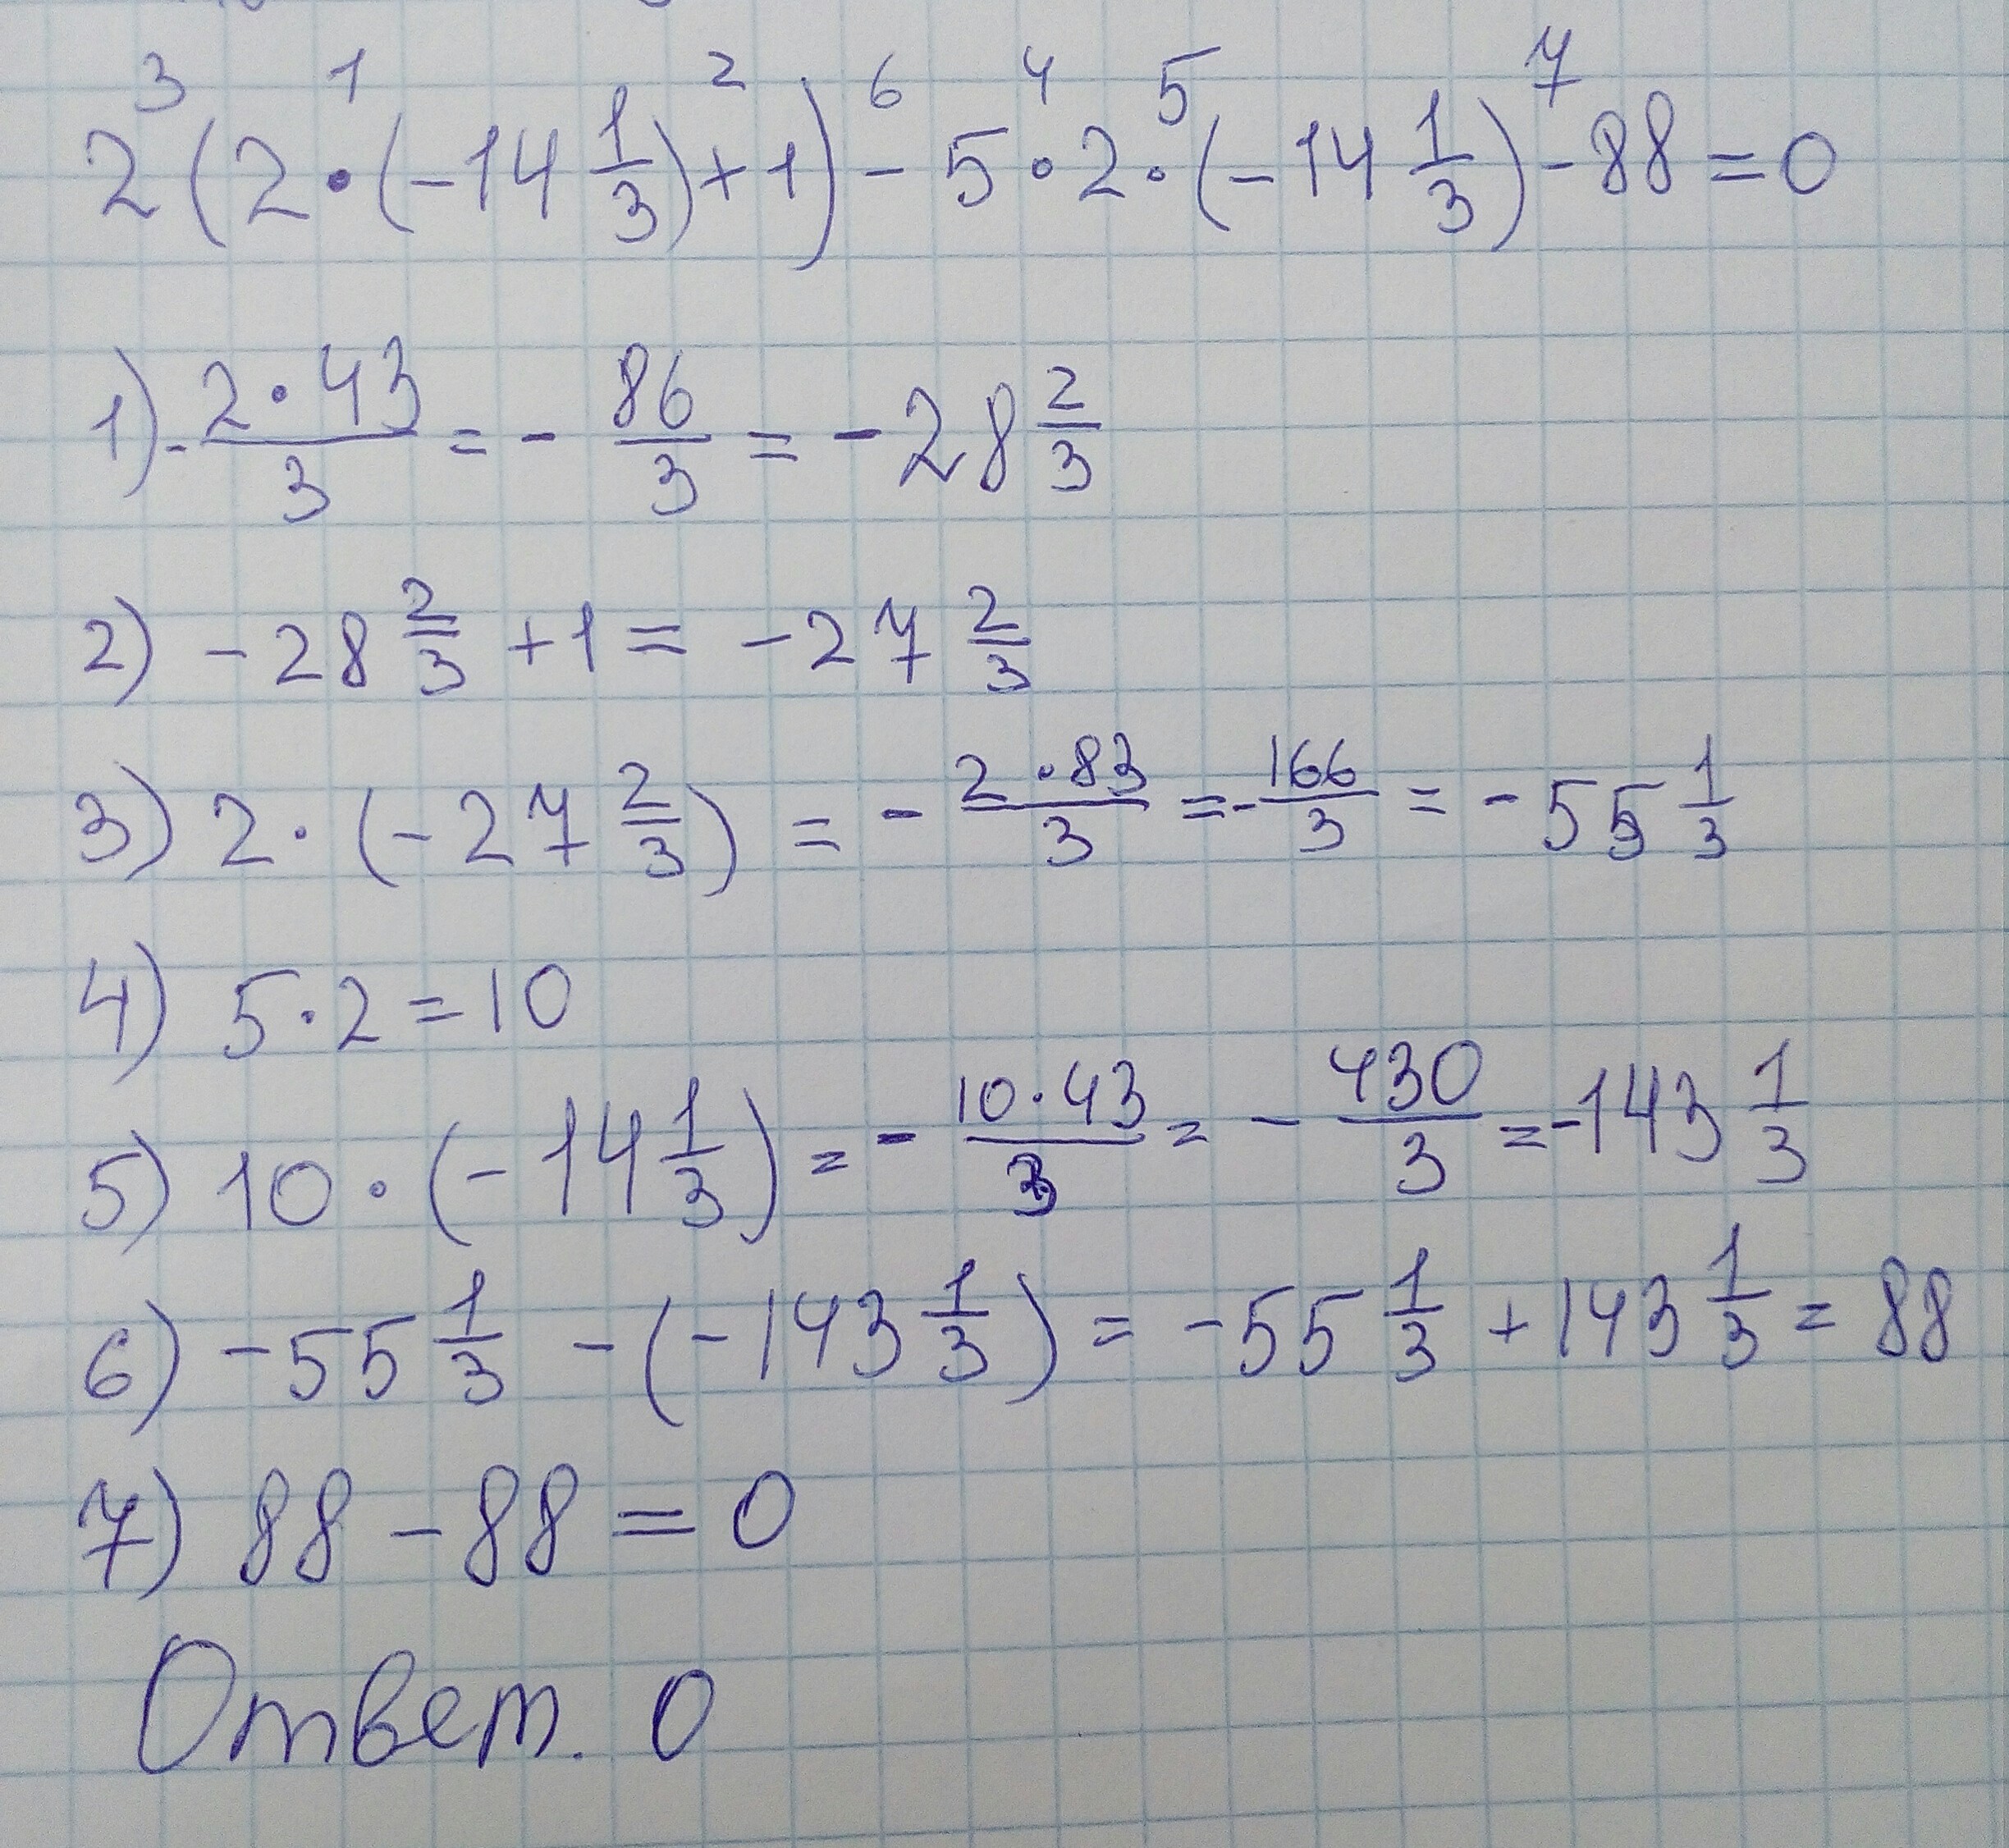 3 1 2 6 4 5 7
2(2·(-14 1/3)+1) - 5·2·(-14 1/3) - 88 = 0
1) - 2·43/3 = - 86/3 = -28 2/3
2) -28 2/3 + 1 = -27 2/3
3) 2·(-27 2/3) = - 2·83/3 = - 166/3 = -55 1/3
4) 5·2 = 10
5) 10·(-14 1/3) = - 10·43/3 = - 430/3 = -143 1/3
6) -55 1/3 - (-143 1/3) = -55 1/3 + 143 1/3 = 88
7) 88 - 88 = 0
Ответ. 0